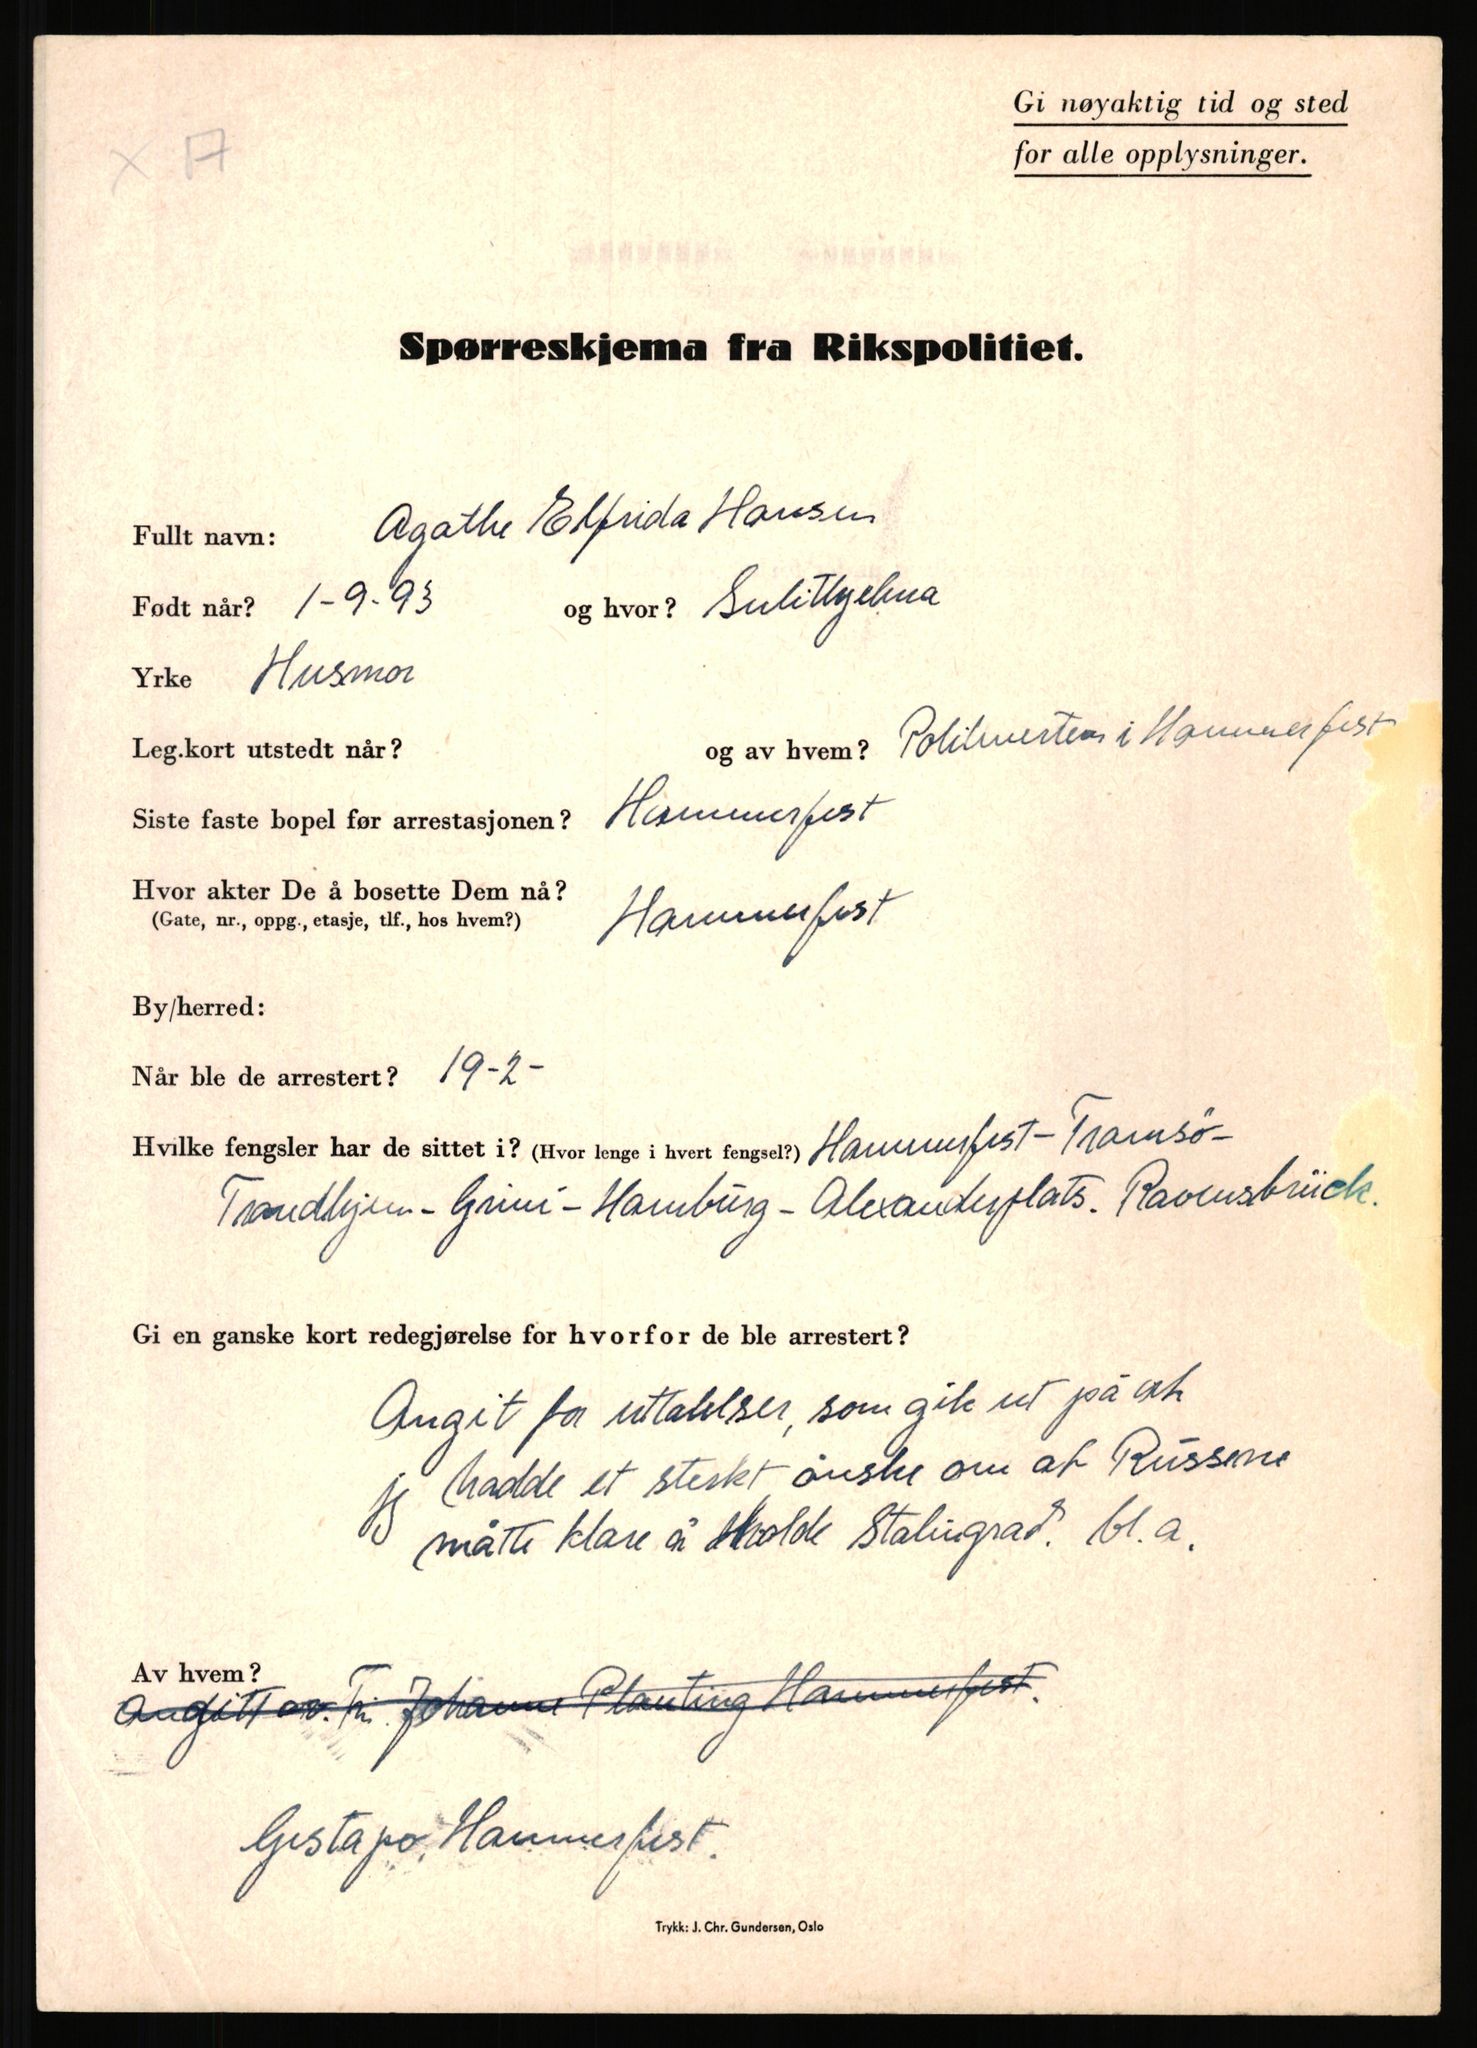 X A
Gi nøyaktig tid og sted
for alle opplysninger.
Spørreskjema fra Rikspolitiet.
Fullt navn: Agathe Elfrida Hansen
Født når? 1-9-93 og hvor? Sulithjelma
Yrke Husmor
Leg.kort utstedt når? og av hvem? Politimesteren i Hammerfest
Siste faste bopel før arrestasjonen? Hammerfest
Hvor akter De å bosette Dem nå? Hammerfest
(Gate, nr., oppg., etasje, tlf., hos hvem?)
By/herred:
Når ble de arrestert? 19-2-
Hvilke fengsler har de sittet i? (Hvor lenge i hvert fengsel?) Hammerfest - Tromsö -
Trondhjem - Grini - Hamburg - Alexanderplats. Ravensbrück.
Gi en ganske kort redegjørelse for hvorfor de ble arrestert?
Angit for uttalelser, som gik ut på at
jeg hadde et sterkt önske om at Russerne
måtte klare å holde Stalingrad. bl.a.
Av hvem?
Angitt av. Fr. Johanne Planting Hammerfest.
Gestapo, Hammerfest.
Trykk: J. Chr. Gundersen, Oslo